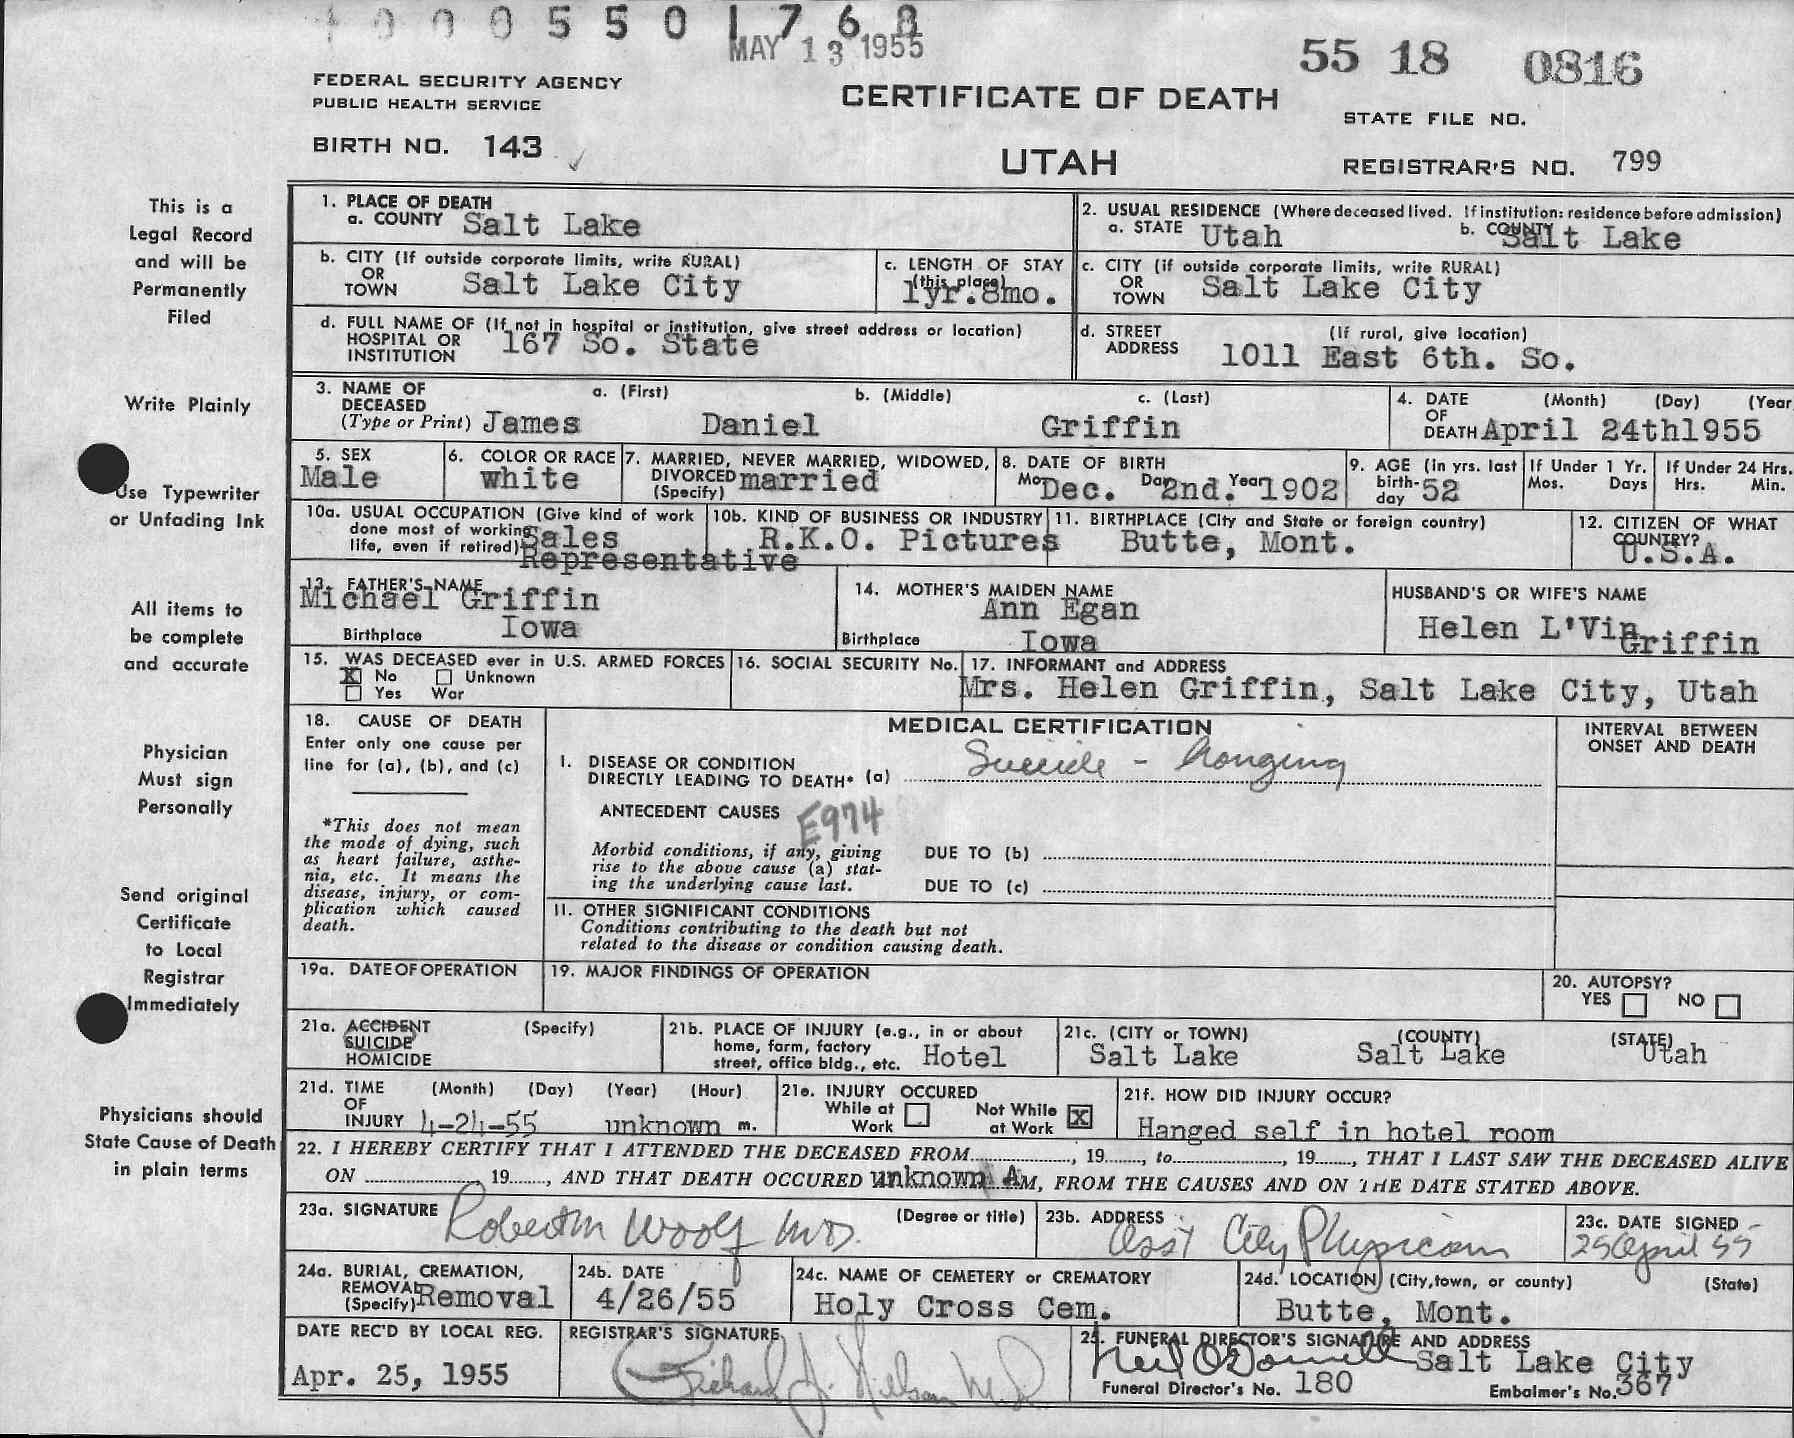 1 0 0 0 5 5 0 1 7 6 8
MAY 13 1955
55 18 0816
FEDERAL SECURITY AGENCY
PUBLIC HEALTH SERVICE
CERTIFICATE OF DEATH
STATE FILE NO.
BIRTH NO. 143
UTAH
REGISTRAR'S NO. 799
This is a
Legal Record
and will be
Permanently
Filed
Write Plainly
Use Typewriter
or Unfading Ink
All items to
be complete
and accurate
Physician
Must sign
Personally
Send original
Certificate
to Local
Registrar
Immediately
Physicians should
State Cause of Death
in plain terms
1. PLACE OF DEATH
a. COUNTY Salt Lake
2. USUAL RESIDENCE (Where deceased lived. If institution: residence before admission)
a. STATE Utah b. COUNTY Salt Lake
b. CITY (If outside corporate limits, write RURAL)
OR
TOWN Salt Lake City
c. LENGTH OF STAY
(this place)
1yr. 8mo.
c. CITY (if outside corporate limits, write RURAL)
OR
TOWN Salt Lake City
d. FULL NAME OF (If not in hospital or institution, give street address or location)
HOSPITAL OR
INSTITUTION 167 So. State
d. STREET (If rural, give location)
ADDRESS 1011 East 6th. So.
3. NAME OF a. (First) b. (Middle) c. (Last)
DECEASED
(Type or Print) James Daniel Griffin
4. DATE (Month) (Day) (Year
OF
DEATH April 24th1955
5. SEX
Male
6. COLOR OR RACE
white
7. MARRIED, NEVER MARRIED, WIDOWED,
DIVORCED married
(Specify)
8. DATE OF BIRTH
Mo. Dec. Day 2nd. Year 1902
9. AGE (In yrs. last
birth-
day 52
If Under 1 Yr.
Mos. Days
If Under 24 Hrs.
Hrs. Min.
10a. USUAL OCCUPATION (Give kind of work
done most of working
life, even if retired) Sales
Representative
10b. KIND OF BUSINESS OR INDUSTRY
R.K.O. Pictures
11. BIRTHPLACE (City and State or foreign country)
Butte, Mont.
12. CITIZEN OF WHAT
COUNTRY?
U.S.A.
13. FATHER'S NAME
Michael Griffin
Birthplace Iowa
14. MOTHER'S MAIDEN NAME
Ann Egan
Birthplace Iowa
HUSBAND'S OR WIFE'S NAME
Helen L'Vin
Griffin
15. WAS DECEASED ever in U.S. ARMED FORCES
X No Unknown
Yes War
16. SOCIAL SECURITY No.
17. INFORMANT and ADDRESS
Mrs. Helen Griffin, Salt Lake City, Utah
18. CAUSE OF DEATH
Enter only one cause per
line for (a), (b), and (c)
*This does not mean
the mode of dying, such
as heart failure, asthe-
nia, etc. It means the
disease, injury, or com-
plication which caused
death.
MEDICAL CERTIFICATION
I. DISEASE OR CONDITION
DIRECTLY LEADING TO DEATH* (a) Suicide - hanging
ANTECEDENT CAUSES E974
Morbid conditions, if any, giving
rise to the above cause (a) stat-
ing the underlying cause last.
DUE TO (b)
DUE TO (c)
II. OTHER SIGNIFICANT CONDITIONS
Conditions contributing to the death but not
related to the disease or condition causing death.
INTERVAL BETWEEN
ONSET AND DEATH
19a. DATE OF OPERATION
19. MAJOR FINDINGS OF OPERATION
20. AUTOPSY?
YES NO
21a. ACCIDENT (Specify)
SUICIDE
HOMICIDE
21b. PLACE OF INJURY (e.g., in or about
home, farm, factory
street, office bldg., etc. Hotel
21c. (CITY or TOWN) (COUNTY) (STATE)
Salt Lake Salt Lake Utah
21d. TIME (Month) (Day) (Year) (Hour)
OF
INJURY 4-24-55 unknown m.
21e. INJURY OCCURED
While at
Work
Not While
at Work X
21f. HOW DID INJURY OCCUR?
Hanged self in hotel room
22. I HEREBY CERTIFY THAT I ATTENDED THE DECEASED FROM, 19, to, 19, THAT I LAST SAW THE DECEASED ALIVE
ON, 19, AND THAT DEATH OCCURED unknown A M, FROM THE CAUSES AND ON THE DATE STATED ABOVE.
23a. SIGNATURE (Degree or title)
Robert M Woolf M.D.
23b. ADDRESS
Asst City Physician
23c. DATE SIGNED
25 April 55
24a. BURIAL, CREMATION,
REMOVAL
(Specify) Removal
24b. DATE
4/26/55
24c. NAME OF CEMETERY or CREMATORY
Holy Cross Cem.
24d. LOCATION (City, town, or county) (State)
Butte, Mont.
DATE REC'D BY LOCAL REG.
Apr. 25, 1955
REGISTRAR'S SIGNATURE
Richard J. Nelson M.D.
25. FUNERAL DIRECTOR'S SIGNATURE AND ADDRESS
Neil O'Donnell Salt Lake City
Funeral Director's No. 180 Embalmer's No. 367